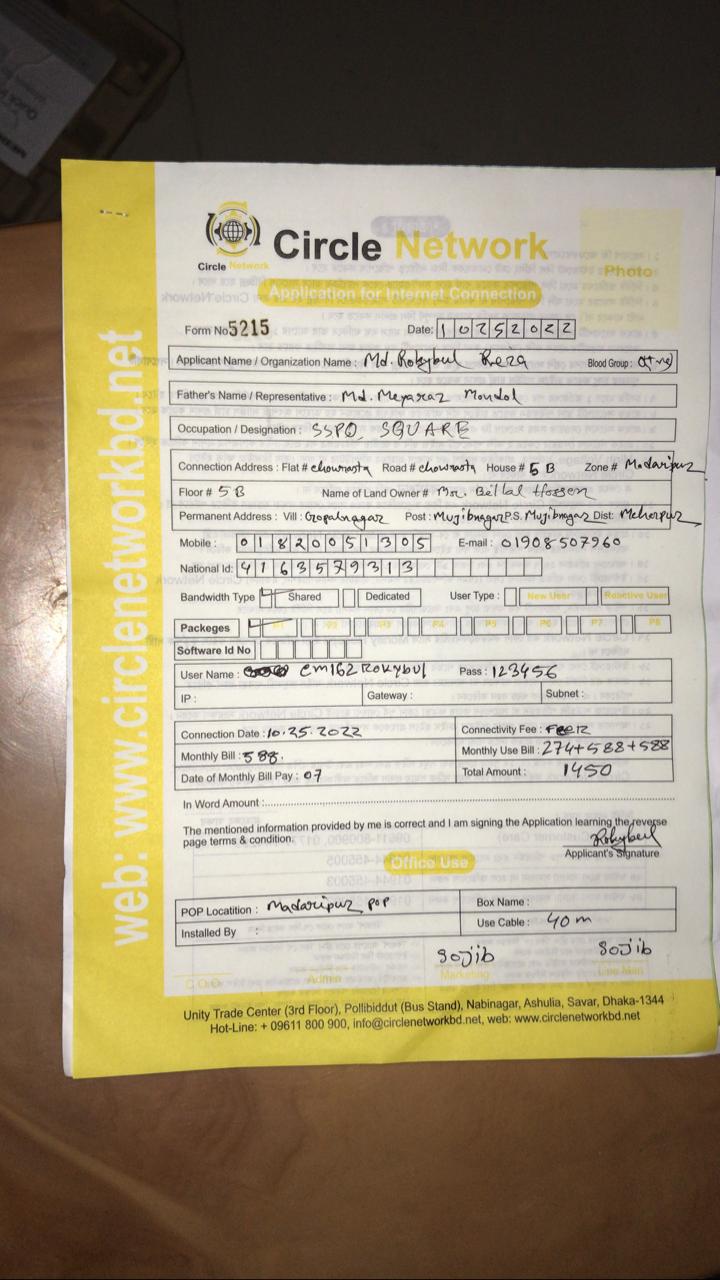 Circle Network
Circle Network
Photo
Application for Internet Connection
web: www.circlenetworkbd.net
Form No 5215 Date: 10252022
Applicant Name / Organization Name : Md. Rokybul Reza Blood Group :
Father's Name / Representative : Md. Meyaraz Mondol
Occupation / Designation : SSPO, SQUARE
Connection Address : Flat # chowrasta Road # chowrasta House # 5 B Zone # Madaripur
Floor # 5 B Name of Land Owner # Mr. Billal Hossen
Permanent Address : Vill : Gopalnagar Post : Mujibnagar P.S. Mujibnagar Dist: Meherpur
Mobile : 01820051305 E-mail : 01908507960
National Id: 4163579313
Bandwidth Type Shared Dedicated User Type : New User Reactive User
Packeges P1 P2 P3 P4 P5 P6 P7 P8
Software Id No
User Name : cm162Rokybul Pass : 123456
IP : Gateway : Subnet :
Connection Date : 10.25.2022 Connectivity Fee :
Monthly Bill : 588. Monthly Use Bill : 274+588+588
Date of Monthly Bill Pay : 07 Total Amount : 1450
In Word Amount :
The mentioned information provided by me is correct and I am signing the Application learning the reverse
page terms & condition.
Rokybul
Applicant's Signature
Office Use
POP Locatition : Madaripur pop Box Name :
Installed By : Use Cable : 40 m
sojib sojib
C.O.O Admin Marketing Line Man
Unity Trade Center (3rd Floor), Pollibiddut (Bus Stand), Nabinagar, Ashulia, Savar, Dhaka-1344
Hot-Line: + 09611 800 900, info@circlenetworkbd.net, web: www.circlenetworkbd.net